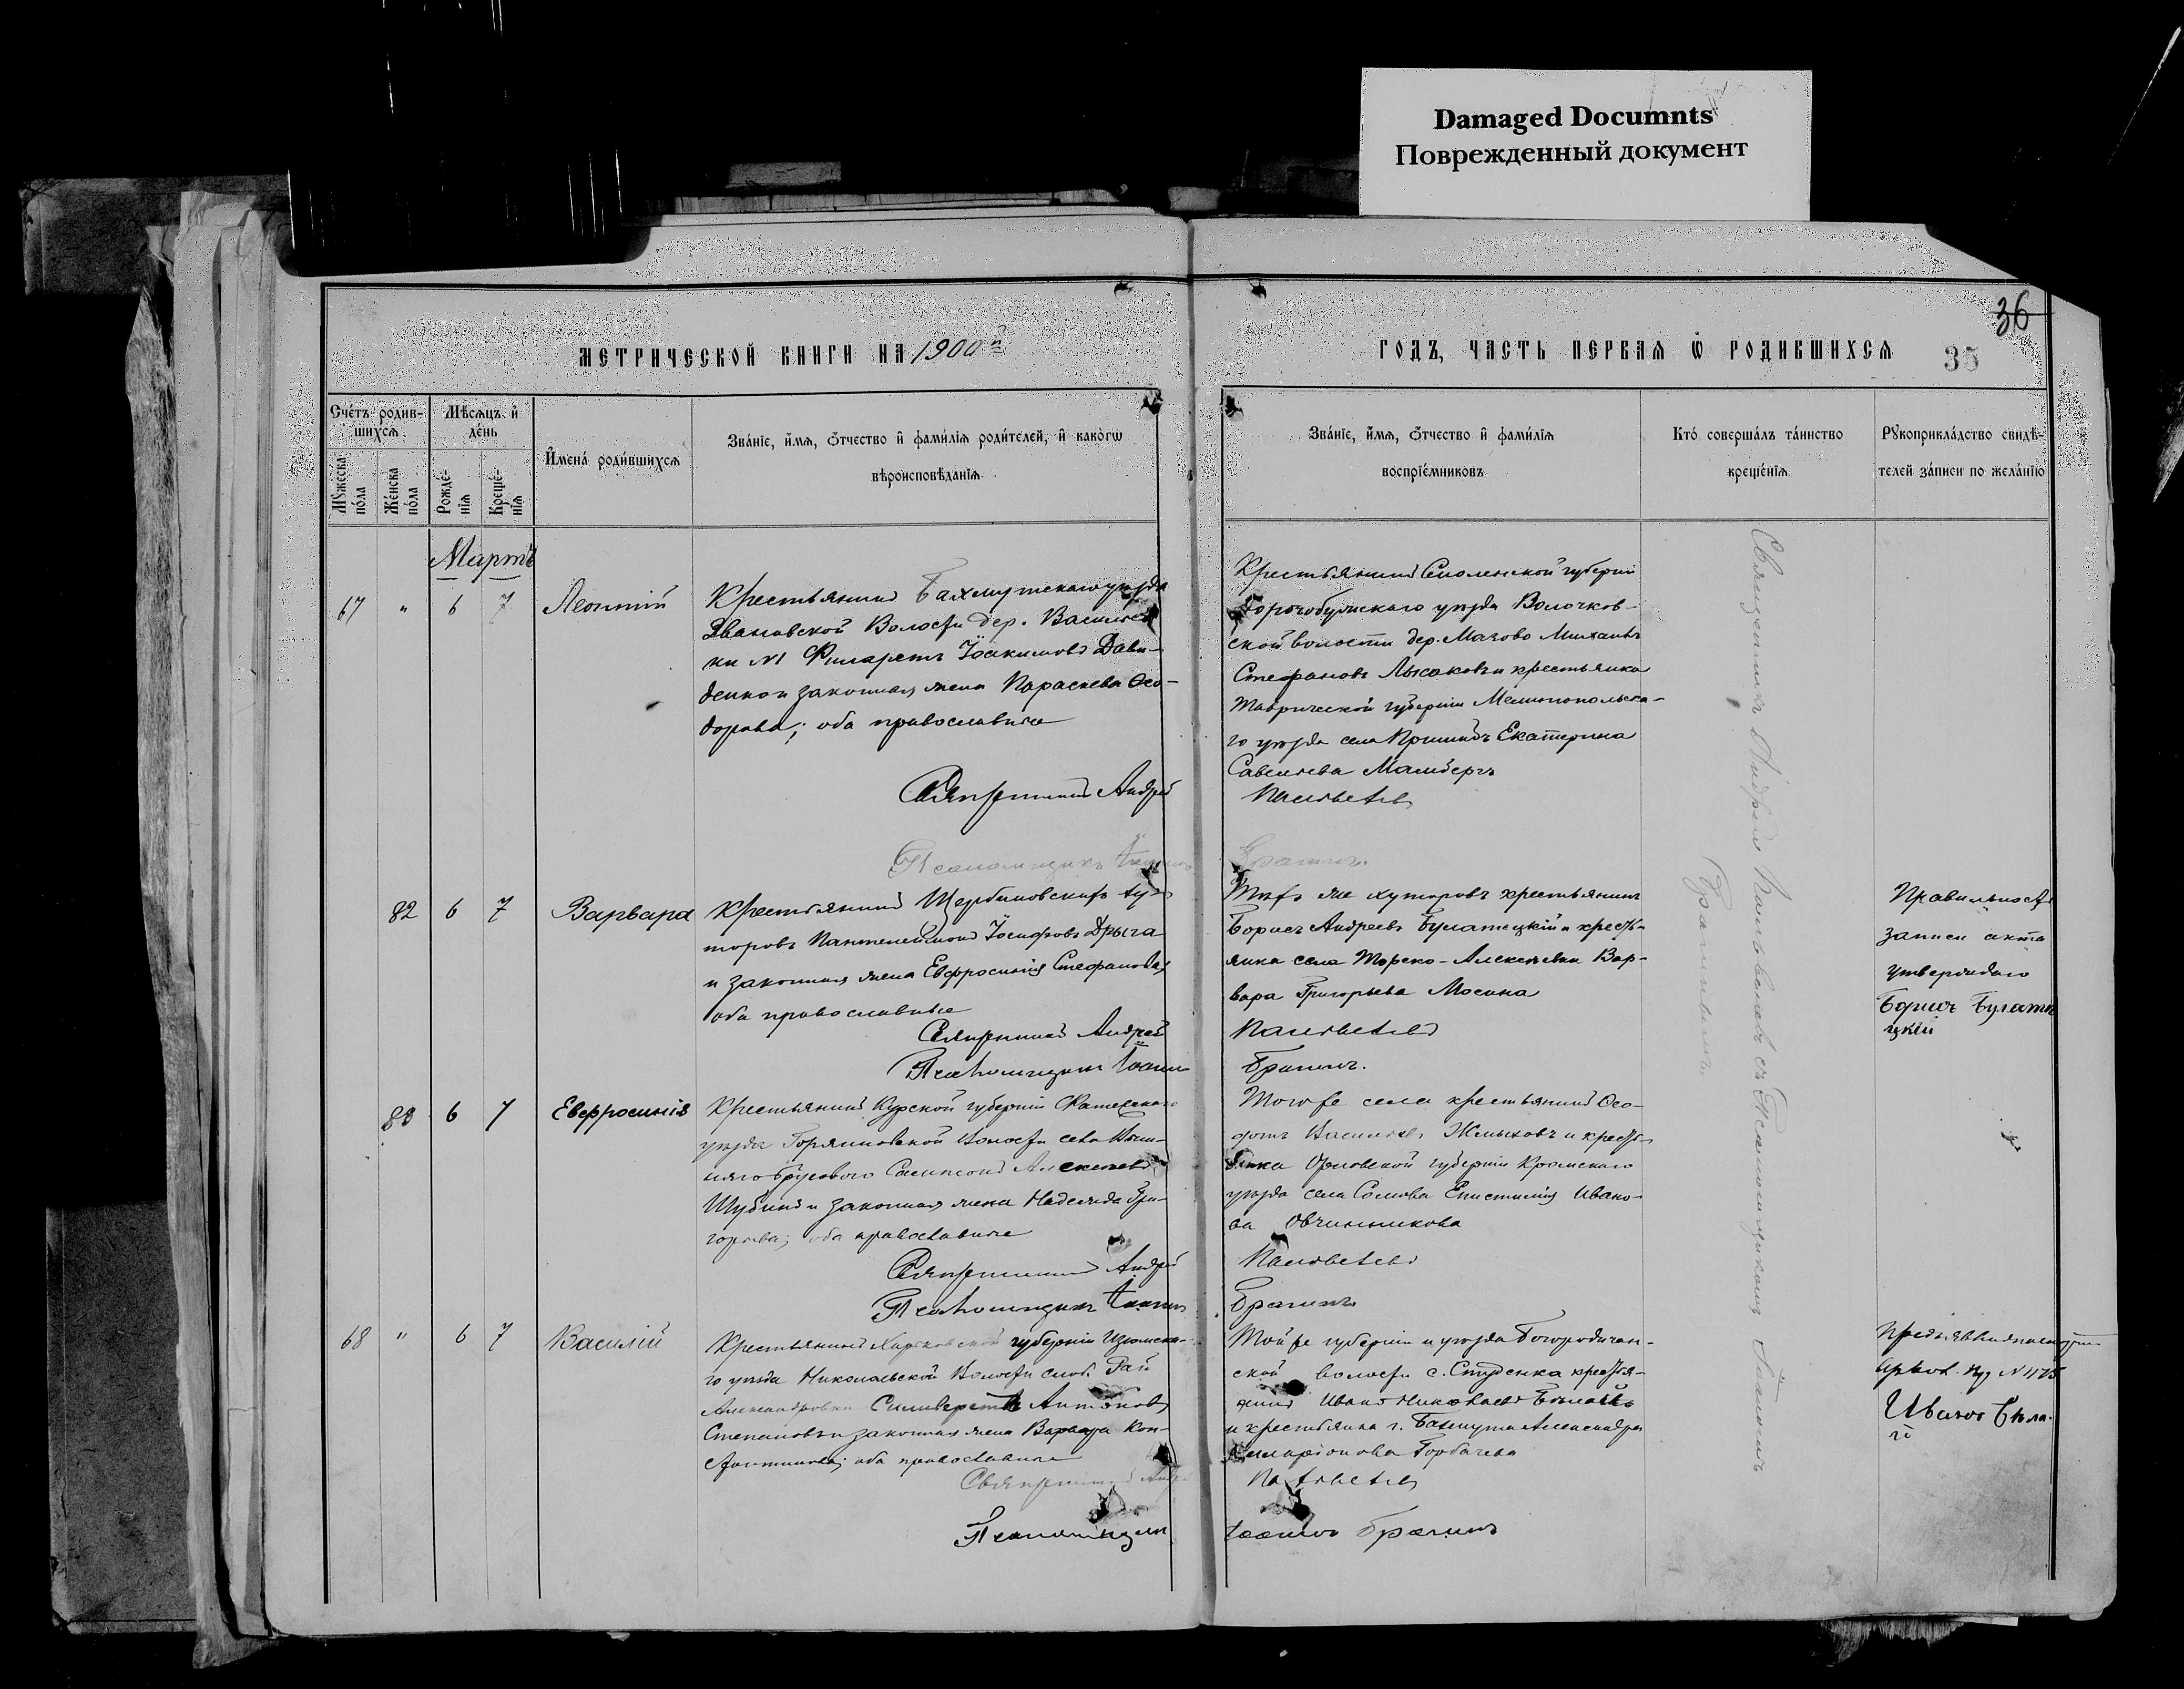 Damaged Documnts
Поврежденный документ
36
МЕТРИЧЕСКОЙ КНИГИ НА 1900й
ГОДЪ, ЧАСТЬ ПЕРВАЯ Ѡ РОДИВШИХСЯ
35
Счетъ родив-
шихся
Мѣсяцъ и
день
Мужеска
пола
Женска
пола
Рожде-
нія
Креще-
нія
Имена родившихся
Званіе, имя, отчество и фамилія родителей, и какогѡ
вѣроисповѣданія
Званіе, имя, отчество и фамилія
воспріемниковъ
Кто совершалъ таинство
крещенія
Рукоприкладство свидѣ-
телей записи по желанію
Мартъ
67 " 6 7 Леонтій
Крестьянинъ Бахмутскаго уѣзда
Ивановской Волости дер. Васильев
ки №1 Филаретъ Іоакимовъ Дави-
денко и законная жена Параскева Ѳео-
дорова; оба православные
Священникъ Андрей
Псаломщикъ Іоаннъ
Крестьянинъ Смоленской губерніи
Дорогобужскаго уѣзда Волочков-
ской волости дер. Мазово Михаилъ
Стефановъ Лысаковъ и крестьянка
Таврической губерніи Мелитопольска-
го уѣзда села Екатерина
Савельева
Пантовъ
Брагинъ.
82 6 7 Варвара
Крестьянинъ Щербиновскихъ ху-
торовъ Пантелеймонъ Іосифовъ Дрыга
и законная жена Евфросинія Стефанова;
оба православные
Священникъ Андрей
Псаломщикъ Іоаннъ
Тѣхъ же хуторовъ крестьянинъ
Борисъ Андреевъ Булатецкій и кресть-
янка села Торско-Алексѣевки Вар-
вара Григорьева Мосина
Брагинъ.
Правильность
записи акта
утверждаю
Борисъ Булате
цкій
83 6 7 Евфросинія
Крестьянинъ Курской губерніи Фатежскаго
уѣзда Горяиновской Волости села Ниж-
няго Брусового Самсонъ Алексѣевъ
Шубинъ и законная жена Надежда Гри-
горьева; оба православные
Священникъ Андрей
Псаломщикъ Іоаннъ
Того же села крестьянинъ Ѳео-
Васильевъ Жмыховъ и кресть-
янка Орловской губерніи Кромскаго
уѣзда села Сомова Епистимія Ивано-
ва Овчинникова
Брагинъ
68 " 6 7 Василій
Крестьянинъ Харьковской губерніи Изюмска-
го уѣзда Николаевской Волости слоб. Рай
Александровки Сильверстъ Антоновъ
Степановъ и законная жена Варвара Кон-
стантинова; оба православные
Священникъ Андрей
Псаломщикъ
Той же губерніи и уѣзда Богородичан-
ской волости с. Студенка крестья-
нинъ Иванъ Николаевъ
и крестьянка г. Бахмута Александра
Илларіонова Горбачева
Іоаннъ Брагинъ
Иванъ
Священникъ Андрей съ Псаломщикомъ Іоанномъ
Брагинымъ